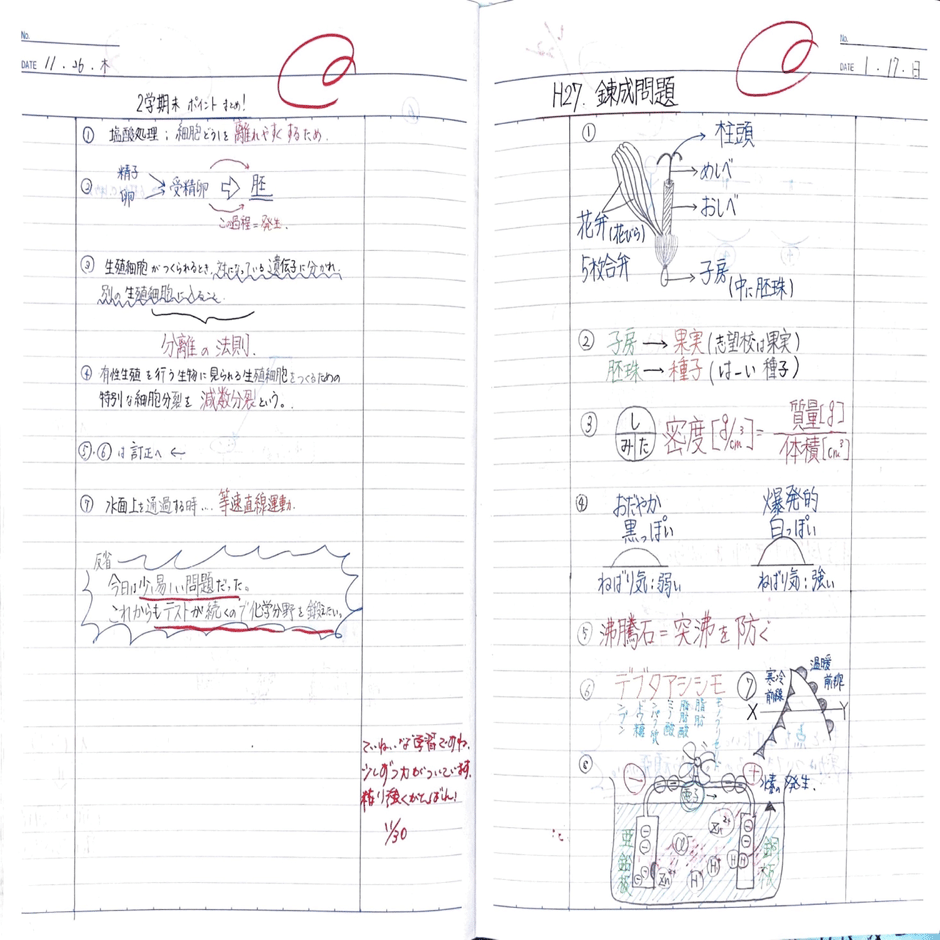 No.
DATE 11・26・木
2学期末 ポイント まとめ!
① 塩酸処理;細胞どうしを離れやすくするため.
② 精子
卵
受精卵 ⇨ 胚
この過程=発生.
③ 生殖細胞がつくられるとき,対になっている遺伝子に分かれ,
別の生殖細胞に入ること.
分離の法則.
④ 有性生殖を行う生物に見られる生殖細胞をつくるための
特別な細胞分裂を減数分裂という。
⑤・⑥は訂正へ ←
⑦ 水面上を通過する時… 等速直線運動.
反省
今日は少し易しい問題だった。
これからもテストが続くので化学分野を鍛えたい。
ていねいな学習ですね.
少しずつ力がついています.
粘り強くがんばれ!
11/30
No.
DATE 1・17・日
H27. 錬成問題
①
→柱頭
→めしべ
→おしべ
花弁(花びら)
5枚合弁
→子房
(中に胚珠)
② 子房→果実(志望校は果実)
胚珠→種子(はーい種子)
③ し
み た
密度[g/cm³]=質量[g]
体積[cm³]
④ おだやか 爆発的
黒っぽい 白っぽい
ねばり気:弱い ねばり気:強い
⑤ 沸騰石=突沸を防ぐ
⑥ デブタアシシモ
デンプン
ブドウ糖
タンパク質
アミノ酸
脂肪酸
脂肪
モノグリセリド
⑦
寒冷
前線
温暖
前線
X Y
⑧
⊖ ⊕
電子→
の発生.
亜鉛板
銅板
Zn²⁺
Cl⁻
H⁺
H⁺
Zn²⁺
H H